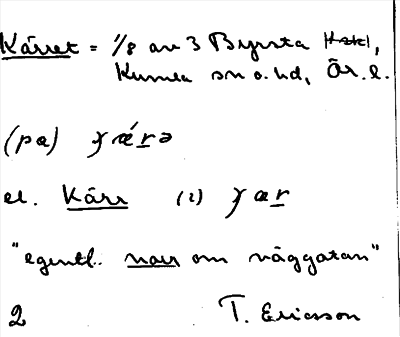 Kärret = 1/8 av 3 Byrsta
Kumla sn o. hd, Ör. l.
(på) χǽrə
el. Kärr (i) χær
"egentl. norr om väggatan"
2 T. Ericsson